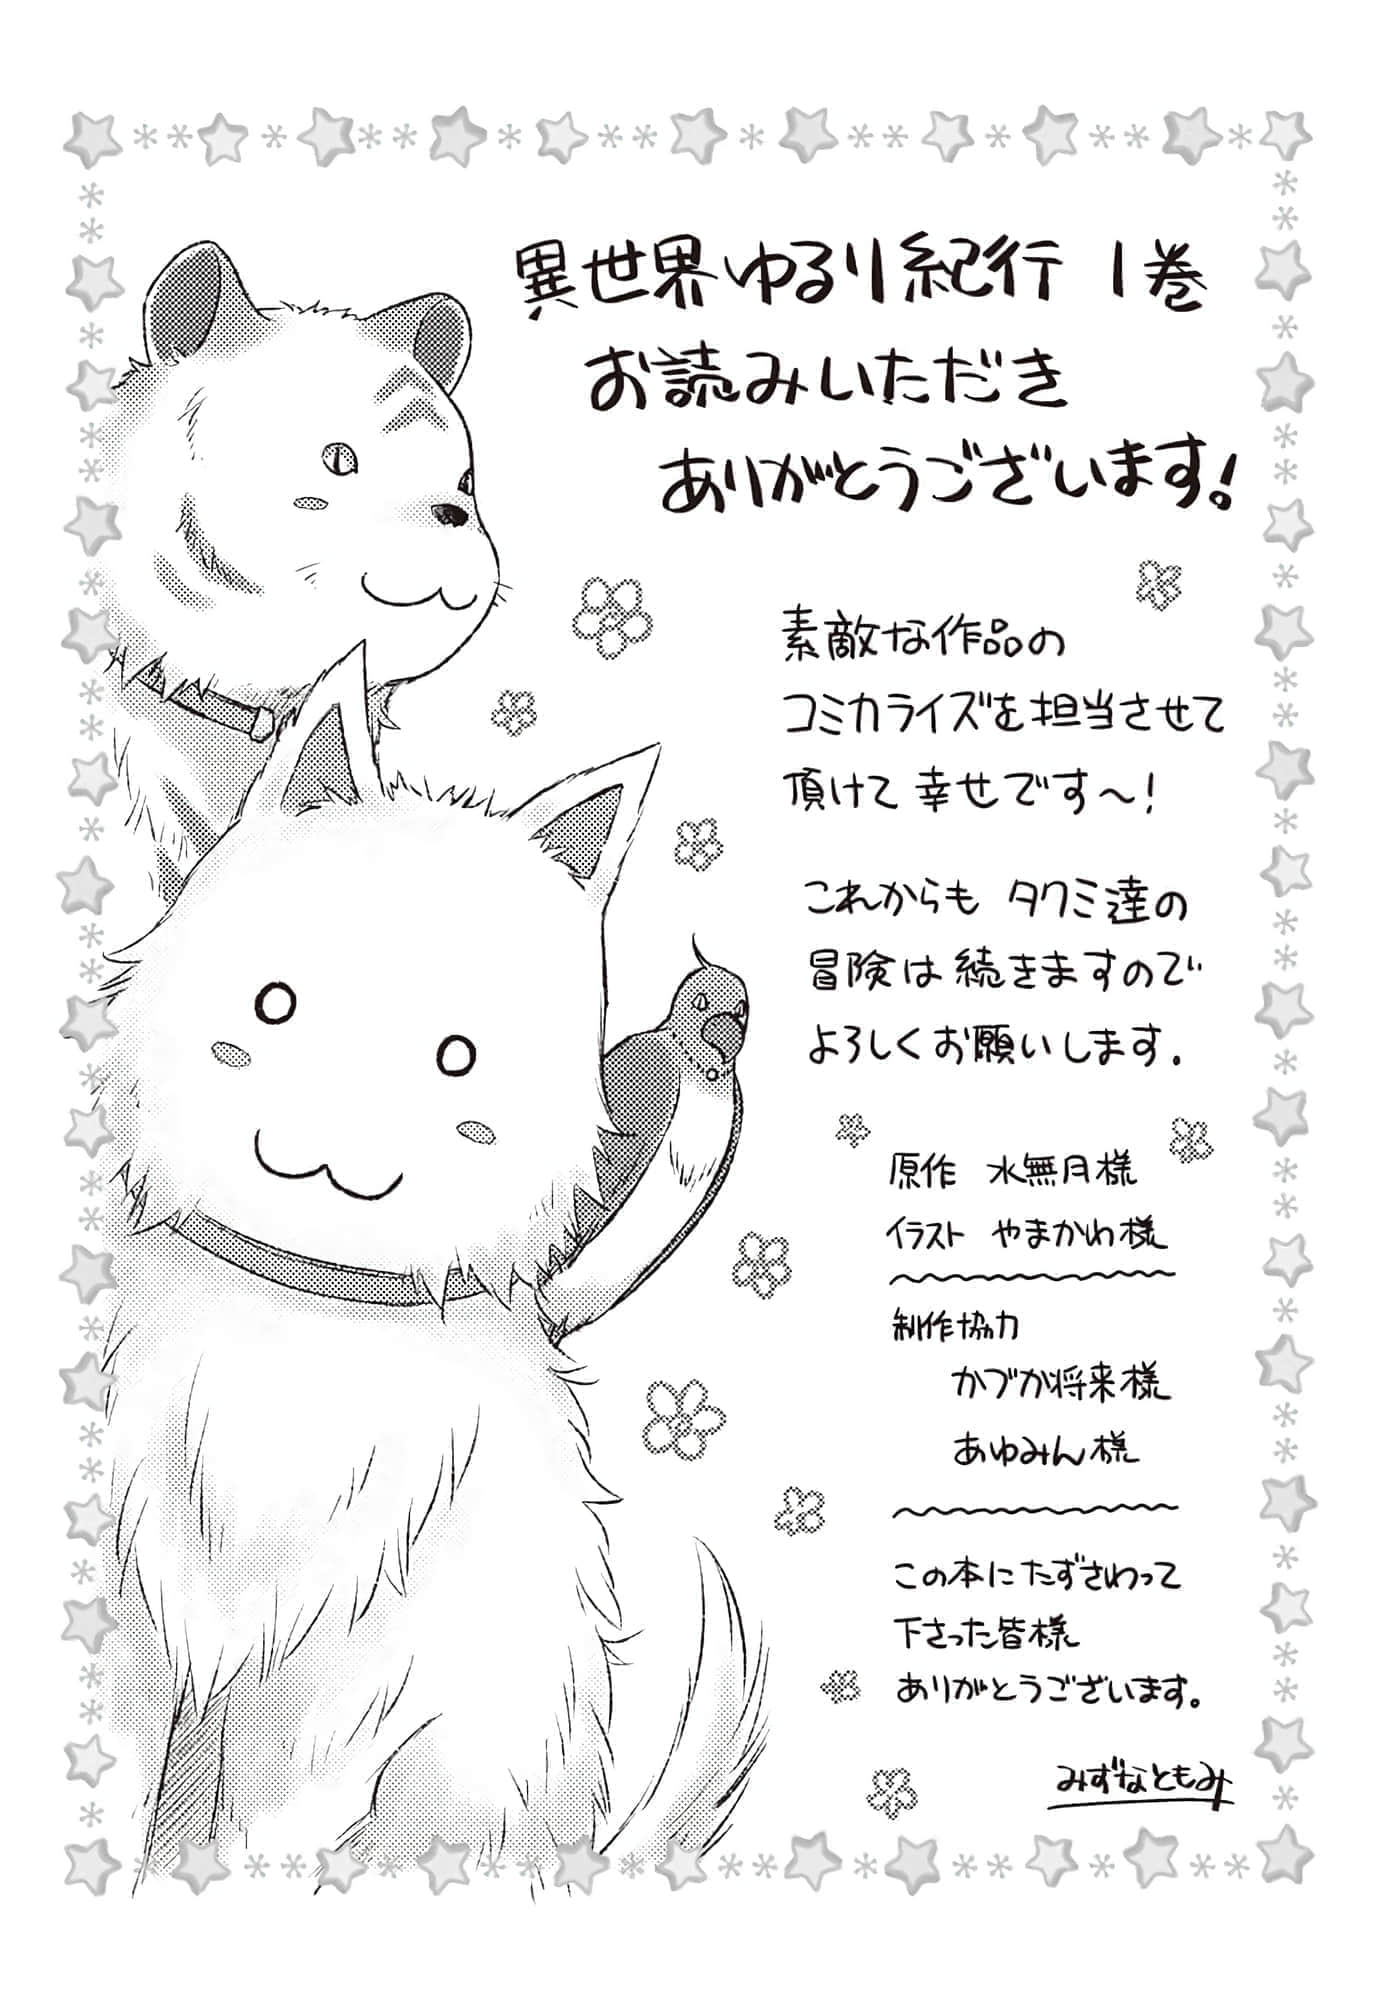 異世界ゆるり紀行 1巻
お読みいただき
ありがとうございます!
素敵な作品の
コミカライズを担当させて
頂けて幸せです〜!
これからも タクミ達の
冒険は続きますので
よろしくお願いします.
原作 水無月様
イラスト やまかわ様
制作協力
かづか将来様
あゆみん様
この本にたずさわって
下さった皆様
ありがとうございます。
みずなともみ